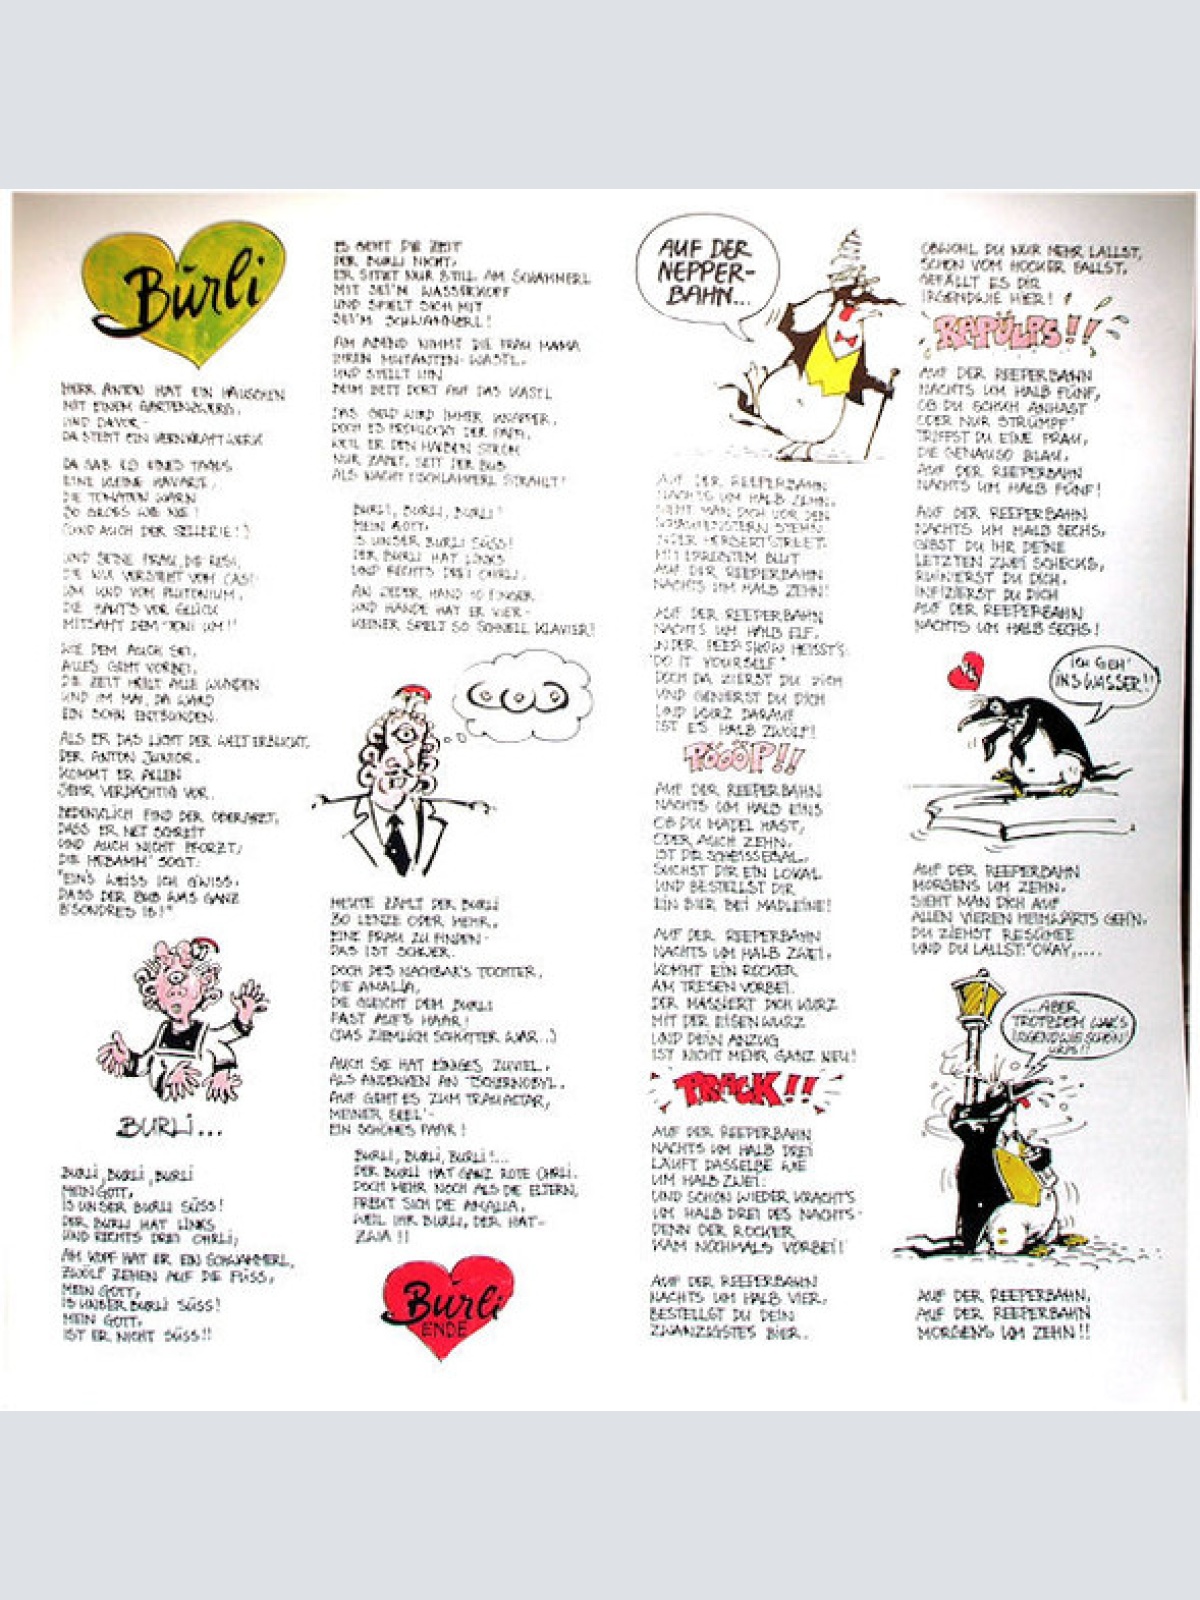 Bürli
HERR ANTON HAT EIN HÄUSCHEN
MIT EINEM GARTENZWERG,
UND DAVOR-
DA STEHT EIN KERNKRAFTWERK
DA GAB ES EINES TAGS
EINE KLEINE HAVARIE,
DIE TOMATEN WARN
SO GROSS WIE NIE!
(UND AUCH DER SELLERIE!)
UND SEINE FRAU, DIE RESI,
DIE NIX VERSTEHT VOM CÄSI-
UM UND VOM PLUTONIUM,
DIE HAUT'S VOR GLÜCK
MITSAMT DEM "TONI UM!"
WIE DEM AUCH SEI,
ALLES GEHT VORBEI,
DIE ZEIT HEILT ALLE WUNDEN
UND IM MAI, DA WARD
EIN SOHN ENTBUNDEN.
ALS ER DAS LICHT DER WELT ERBLICKT,
DER ANTON JUNIOR,
KOMMT ER ALLEN
SEHR VERDÄCHTIG VOR.
BEDENKLICH FIND DER OBERARZT,
DASS ER NET SCHREIT
UND AUCH NICHT PFORZT;
DIE HEBAMM' SOGT:
"EIN'S WEISS ICH GWISS,
DASS DER BUB WAS GANZ
B'SONDRES IS!"
BURLI...
BURLI, BURLI, BURLI
MEIN GOTT,
IS UNSER BURLI SÜSS!
DER BURLI HAT LINKS
UND RECHTS DREI OHRLI,
AM KOPF HAT ER EIN SCHWAMMERL,
ZWÖLF ZEHEN AUF DIE FÜSS,
MEIN GOTT,
IS UNSER BURLI SÜSS!
MEIN GOTT,
IST ER NICHT SÜSS!!
ES GEHT DIE ZEIT
DER BURLI NICHT,
ER SITZT NUR STILL AM SCHAMMERL
MIT SEI'M WASSERKOPF
UND SPIELT SICH MIT
SEI'M SCHWAMMERL!
AM ABEND NIMMT DIE FRAU MAMA
IHREN MUTANTEN-WASTL,
UND STELLT IHN
BEIM BETT DORT AUF DAS KASTL
DAS GELD WIRD IMMER KNAPPER,
DOCH ES FROHLOCKT DER PAPA,
WEIL ER DEN HALBEN STROM
NUR ZAHLT, SEIT DER BUB
ALS NACHTTISCHLAMPERL STRAHLT!
BURLI, BURLI, BURLI!
MEIN GOTT,
IS UNSER BURLI SÜSS!
DER BURLI HAT LINKS
UND RECHTS DREI OHRLI,
AN JEDER HAND 10 FINGER
UND HÄNDE HAT ER VIER-
KEINER SPIELT SO SCHNELL KLAVIER!
HEUTE ZÄHLT DER BURLI
30 LENZE ODER MEHR,
EINE FRAU ZU FINDEN-
DAS IST SCHWER.
DOCH DES NACHBAR'S TOCHTER,
DIE AMALIA,
DIE GLEICHT DEM BURLI
FAST AUF'S HAAR!
(DAS ZIEMLICH SCHÜTTER WAR...)
AUCH SIE HAT EINIGES ZUVIEL,
ALS ANDENKEN AN TSCHERNOBYL.
AUF GEHT ES ZUM TRAUALTAR,
MEINER SEEL'-
EIN SCHÖNES PAAR!
BURLI, BURLI, BURLI!...
DER BURLI HAT GANZ ROTE OHRLI.
DOCH MEHR NOCH ALS DIE ELTERN,
FREUT SICH DIE AMALIA,
WEIL IHR BURLI, DER HAT-
ZWA!!
Bürli
ENDE
AUF DER
NEPPER-
BAHN...
AUF DER REEPERBAHN
NACHTS UM HALB ZEHN,
SIEHT MAN DICH VOR DEN
SCHAUFENSTERN STEHN.
IN DER HERBERTSTREET,
MIT ERHITZTEM BLUT
AUF DER REEPERBAHN
NACHTS UM HALB ZEHN!
AUF DER REEPERBAHN
NACHTS UM HALB ELF,
IN DER PEEPSHOW HEISST'S:
"DO IT YOURSELF"
DOCH DA ZIERST DU DICH
UND GENIERST DU DICH
UND KURZ DARAUF
IST ES HALB ZWÖLF!
PÖÖÖP!!
AUF DER REEPERBAHN
NACHTS UM HALB EINS
OB DU MÄDEL HAST,
ODER AUCH ZEHN,
IST DIR SCHEISSEGAL,
SUCHST DIR EIN LOKAL
UND BESTELLST DIR
EIN BIER BEI MADLEINE!
AUF DER REEPERBAHN
NACHTS UM HALB ZWEI,
KOMMT EIN ROCKER
AM TRESEN VORBEI.
DER MASSIERT DICH KURZ
MIT DER EISENWURZ
UND DEIN ANZUG
IST NICHT MEHR GANZ NEU!
PRACK!!
AUF DER REEPERBAHN
NACHTS UM HALB DREI
LÄUFT DASSELBE WIE
UM HALB ZWEI:
UND SCHON WIEDER KRACHT'S
UM HALB DREI DES NACHTS-
DENN DER ROCKER
KAM NOCHMALS VORBEI!
AUF DER REEPERBAHN
NACHTS UM HALB VIER,
BESTELLST DU DEIN
ZWANZIGSTES BIER.
OBWOHL DU NUR MEHR LALLST,
SCHON VOM HOCKER FALLST,
GEFÄLLT ES DIR
IRGENDWIE HIER!
RAPÜLPS!!
AUF DER REEPERBAHN
NACHTS UM HALB FÜNF,
OB DU SCHUH ANHAST
ODER NUR STRÜMPF'
TRIFFST DU EINE FRAU,
DIE GENAUSO BLAU,
AUF DER REEPERBAHN
NACHTS UM HALB FÜNF!
AUF DER REEPERBAHN
NACHTS UM HALB SECHS,
GIBST DU IHR DEINE
LETZTEN ZWEI SCHECKS,
RUINIERST DU DICH,
INFIZIERST DU DICH
AUF DER REEPERBAHN
NACHTS UM HALB SECHS!
ICH GEH'
INS WASSER!!
AUF DER REEPERBAHN
MORGENS UM ZEHN,
SIEHT MAN DICH AUF
ALLEN VIEREN HEIMWÄRTS GEH'N.
DU ZIEHST RESÜMEE
UND DU LALLST: "OKAY,....
...ABER
TROTZDEM WAR'S
IRGENDWIE SCHÖN
AUF DER REEPERBAHN,
AUF DER REEPERBAHN
MORGENS UM ZEHN!!